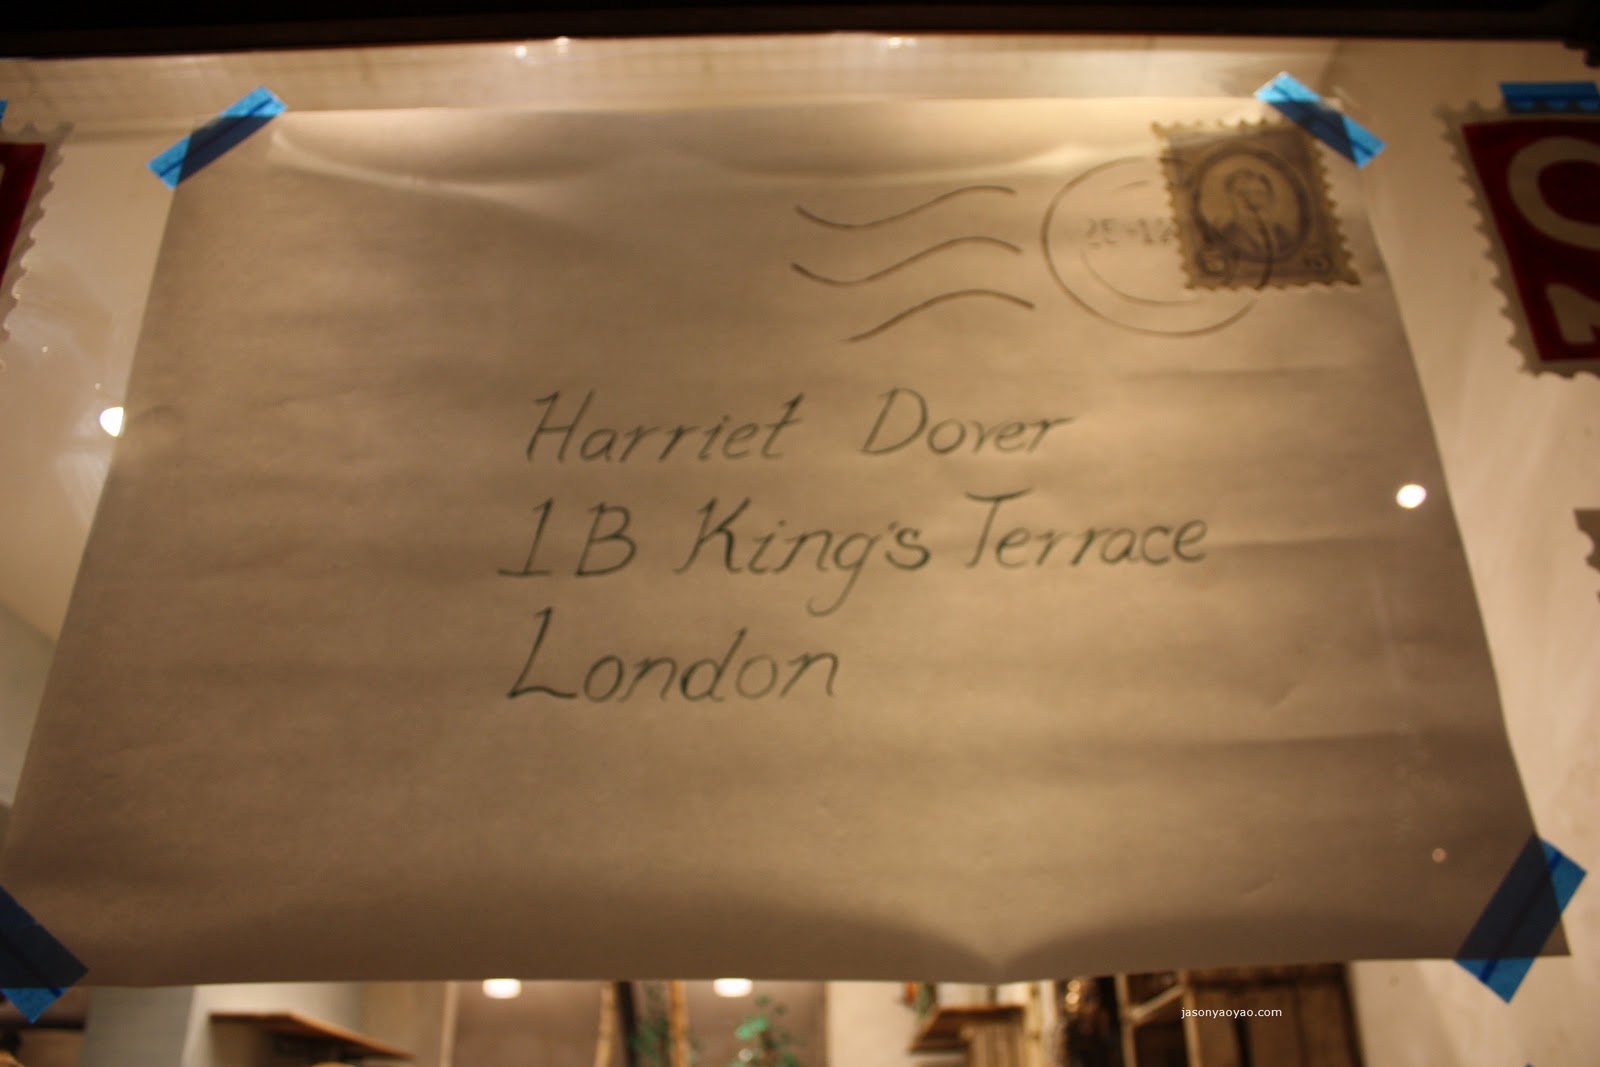 Harriet Dover
1B King's Terrace
London
jasonyaoyao.com